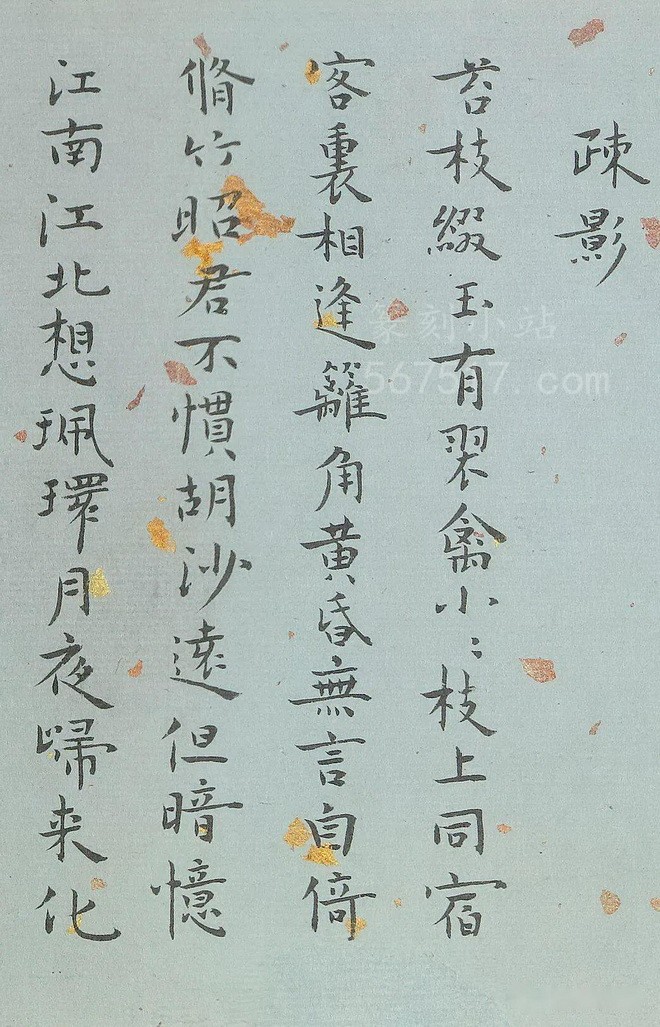 疎影
苔枝綴玉有翠禽小〻枝上同宿
客裏相逢籬角黄昏無言自倚
脩竹昭君不慣胡沙遠但暗憶
江南江北想珮環月夜歸来化
篆刻小站
com